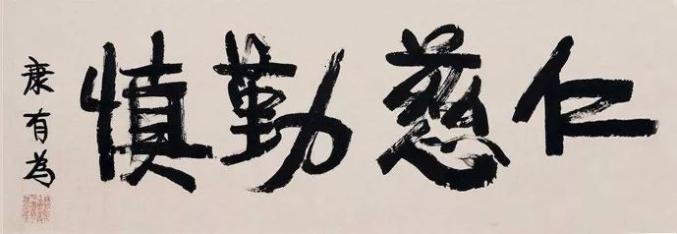 仁慈勤慎
康有為